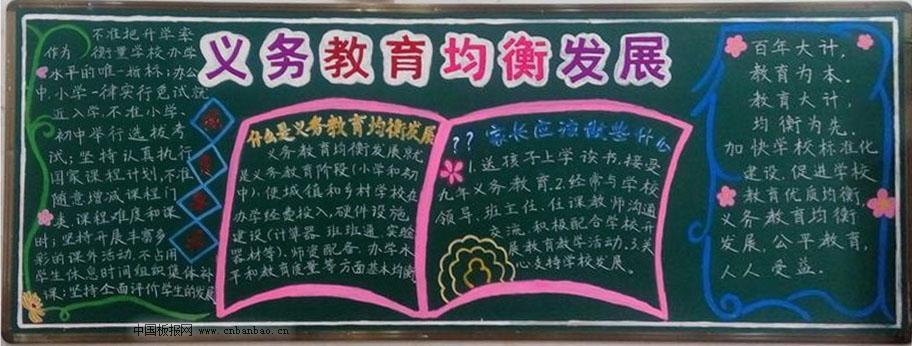 义务教育均衡发展
不准把升学率
作为衡量学校办学
水平的唯一指标;办公
中小学一律实行免试就
近入学,不准小学、
初中举行选拔考
试;坚持认真执行
国家课程计划,不准
随意增减课程门
类、课程难度和课
时;坚持开展丰富多
彩的课外活动,不占用
学生休息时间组织集体补
课;坚持全面评价学生的发展
什么是义务教育均衡发展
义务教育均衡发展就
是义务教育阶段(小学和初
中),使城镇和乡村学校在
办学经费投入,硬件设施
建设(计算器、班班通、实验
器材等)、师资配备、办学水
平和教育质量等方面基本均衡
??家长应该做些什么
1.送孩子上学读书,接受
九年义务教育.2.经常与学校
领导、班主任、任课教师沟通
交流,积极配合学校开
展教育教学活动.3.关
心支持学校发展。
百年大计,
教育为本.
教育大计,
均衡为先.
加快学校标准化
建设,促进学校
教育优质均衡,
义务教育均衡
发展,公平教育,
人人受益.
中国板报网 www.cnbanbao.cn